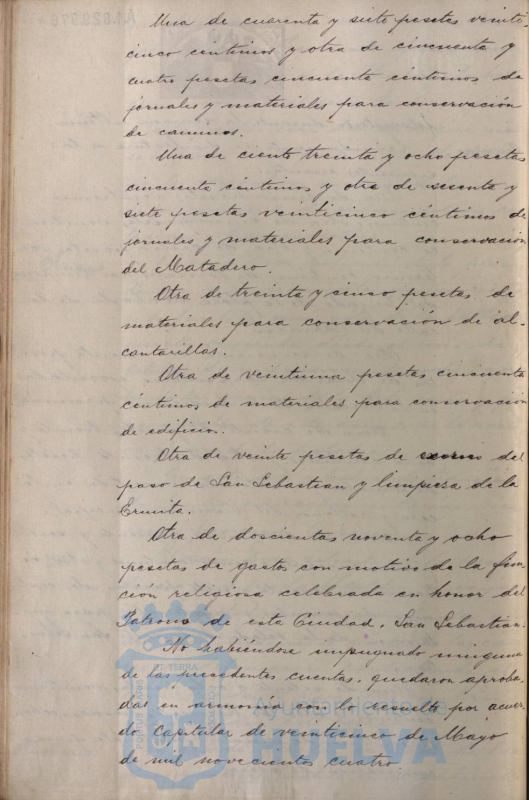 Una de cuarenta y siete pesetas veinti-
cinco centimos y otra de cincuenta y
cuatro pesetas cincuenta céntimos de
jornales y materiales para conservación
de caminos.
Una de ciento treinta y ocho pesetas
cincuenta céntimos y otra de sesenta y
siete pesetas veinticinco céntimos de
jornales y materiales para conservación
del Matadero.
Otra de treinta y cinco pesetas de
materiales para conservación de al-
cantarillas.
Otra de veintiuna pesetas cincuenta
céntimos de materiales para conservacion
de edificios.
Otra de veinte pesetas de exorno del
paso de San Sebastian y limpieza de la
Ermita.
Otra de doscientas noventa y ocho
pesetas de gastos con motivo de la fun-
ción religiosa celebrada en honor del
Patrono de esta Ciudad, San Sebastian.
No habiéndose impugnado ninguna
de las precedentes cuentas, quedaron aproba-
das en armonía con lo resuelto por acuer-
do Capitular de veinticinco de Mayo
de mil novecientos cuatro.
Ayuntamiento de
HUELVA